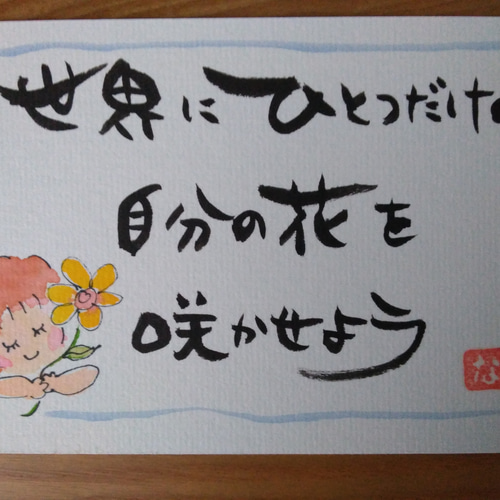 世界にひとつだけの
自分の花を
咲かせよう
な